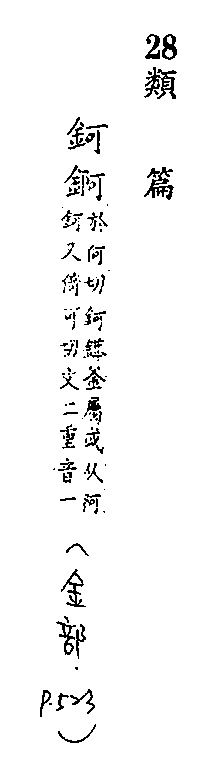 28類篇
鈳錒
於何切鈳䥈釜屬或从阿
鈳又倚可切文二重音一
(金部．P.523)